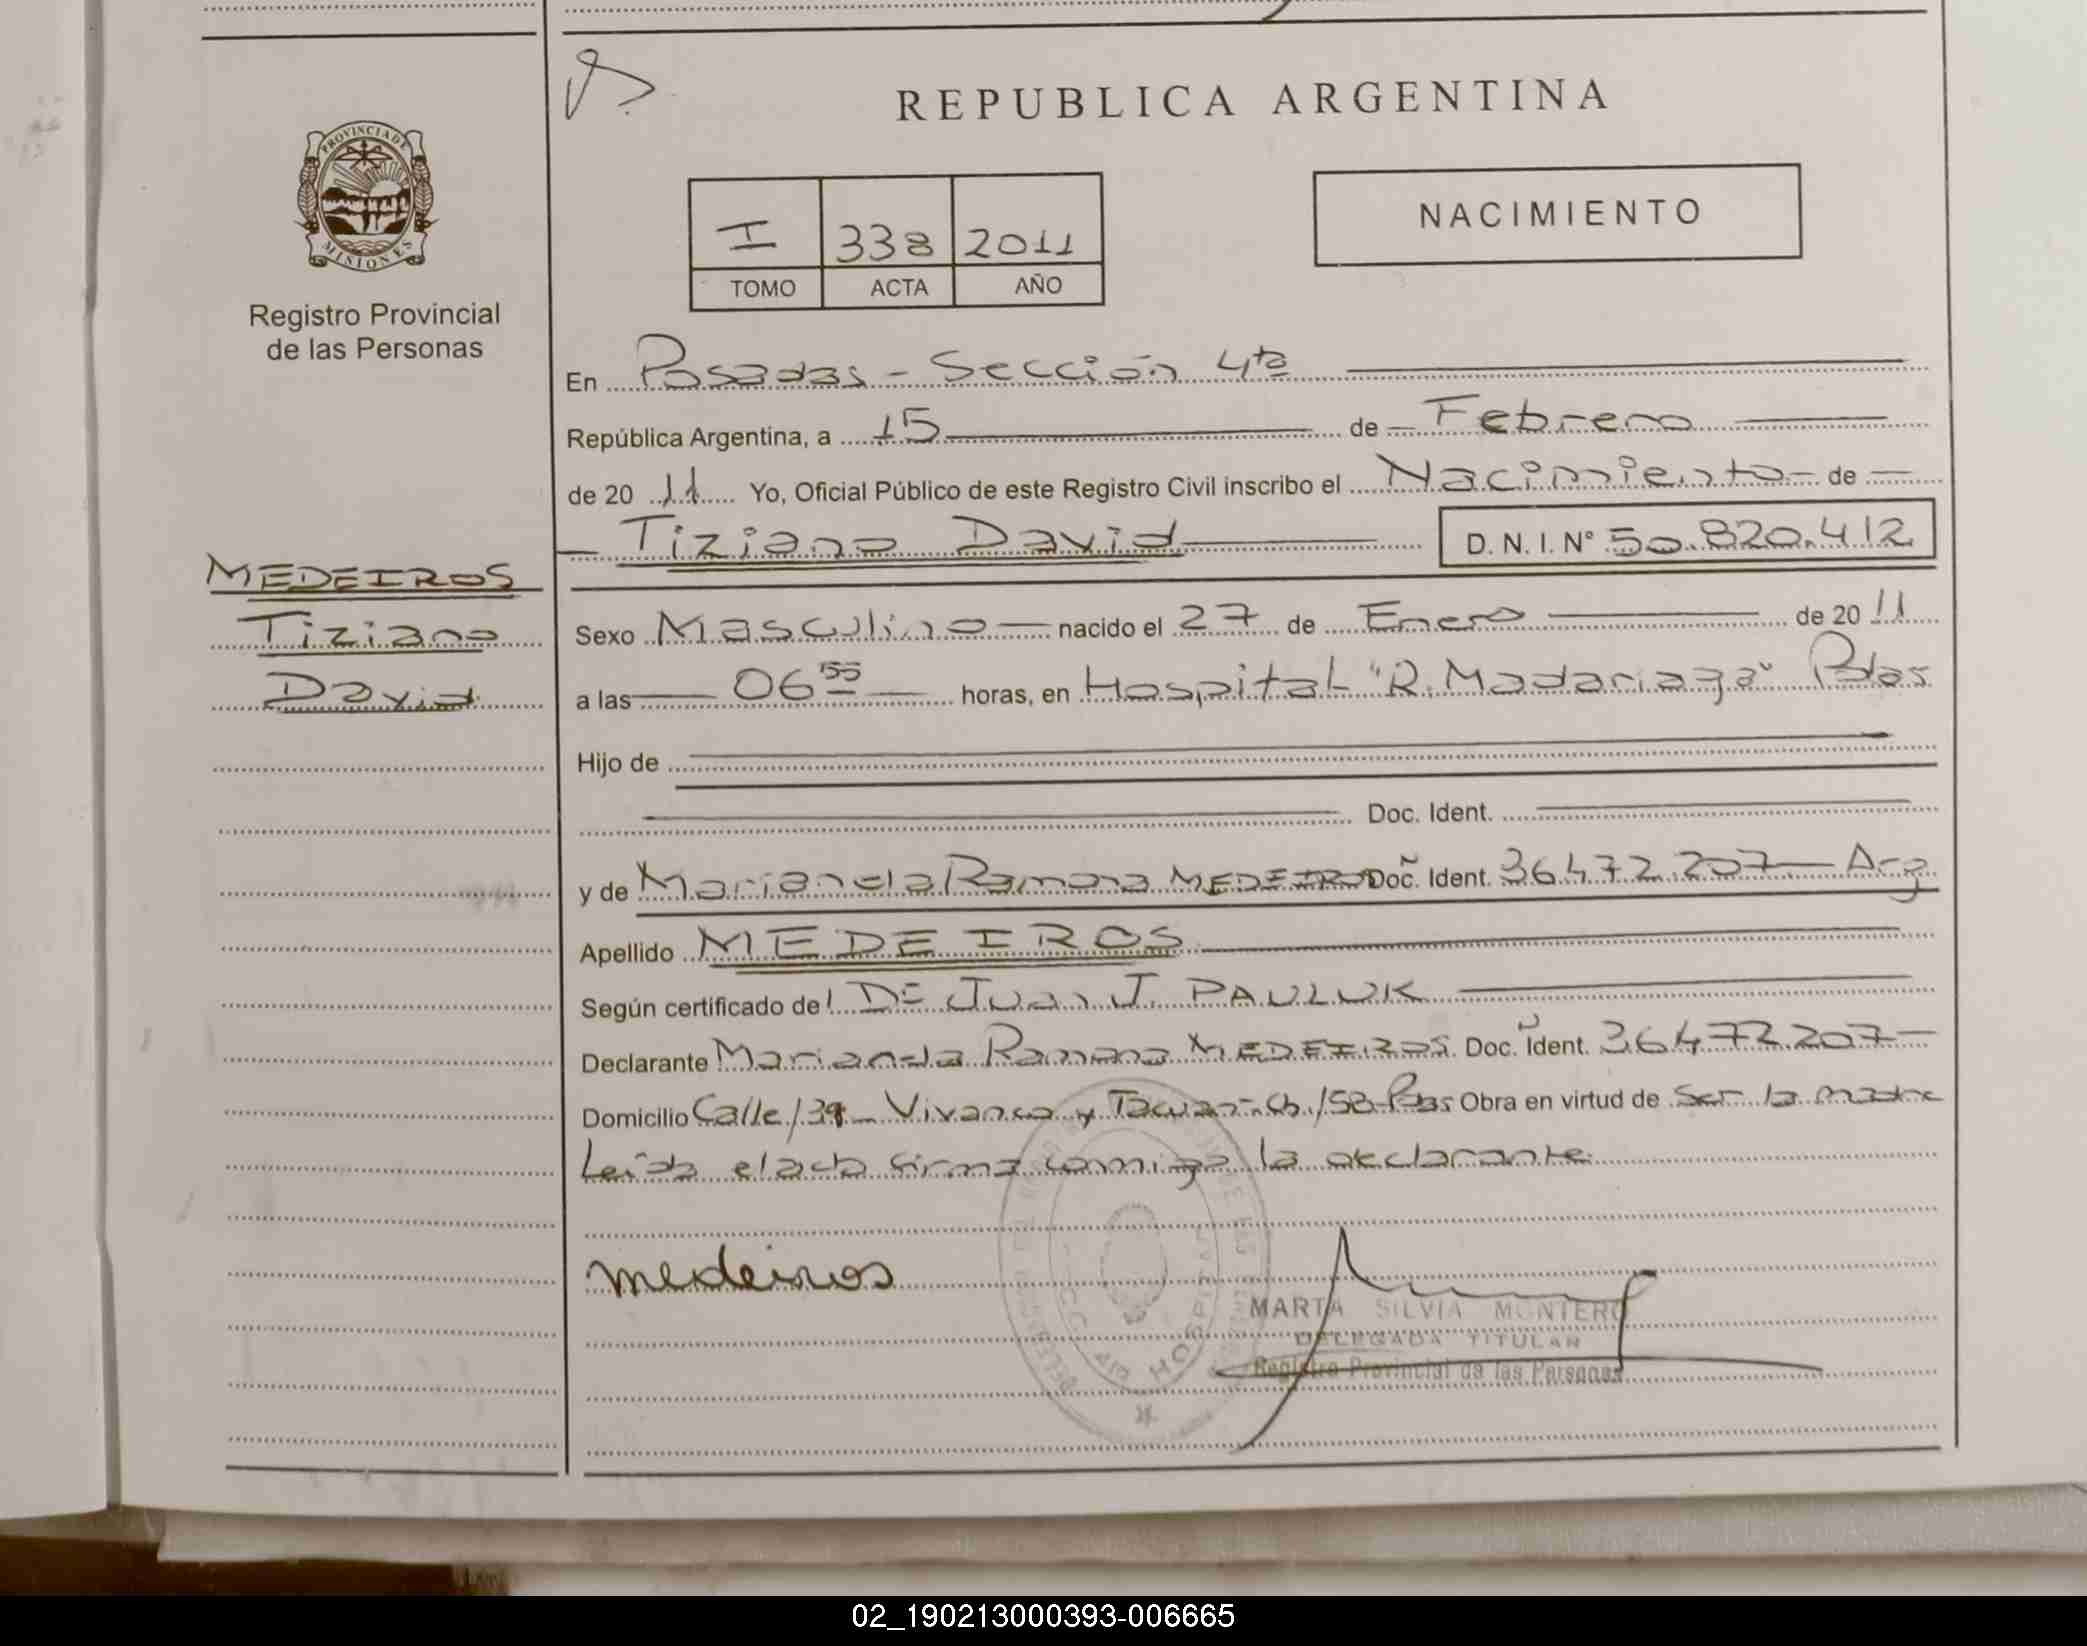 REPUBLICA ARGENTINA
PROVINCIA DE MISIONES
Registro Provincial
de las Personas
I 338 2011
TOMO ACTA AÑO
NACIMIENTO
En Posadas - Sección 4ta
República Argentina, a 15 de Febrero
de 20 11 Yo, Oficial Público de este Registro Civil inscribo el Nacimiento de
Tiziano David D. N. I. N° 50.820.412
MEDEIROS
Tiziano
David
Sexo Masculino nacido el 27 de Enero de 20 11
a las 06 55 horas, en Hospital "R. Madariaga" Pdas
Hijo de
Doc. Ident.
y de Marianela Ramona MEDEIROS Doc. Ident. 36.472.207 Arg
Apellido MEDEIROS
Según certificado de DE Juan J. PAULUK
Declarante Marianela Ramona MEDEIROS Doc. Ident. 36.472.207
Domicilio Calle 139 Vivanco y Ch 158 Pdas Obra en virtud de ser la madre
Leída el acta firma conmigo la declarante
medeiros
MARTA SILVIA MONTERO
DELEGADA TITULAR
Registro Provincial de las Personas
HOSPITAL
02_190213000393-006665